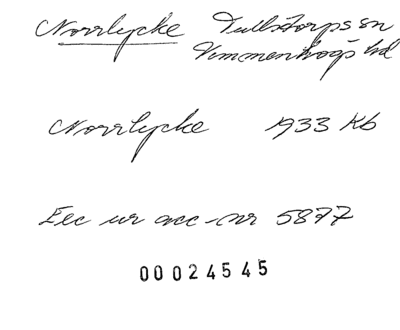 Norrlycke Tullstorps sn
Vemmenhögs hd
Norrlycke 1933 Kb
Exc ur acc-nr 5877
00024545